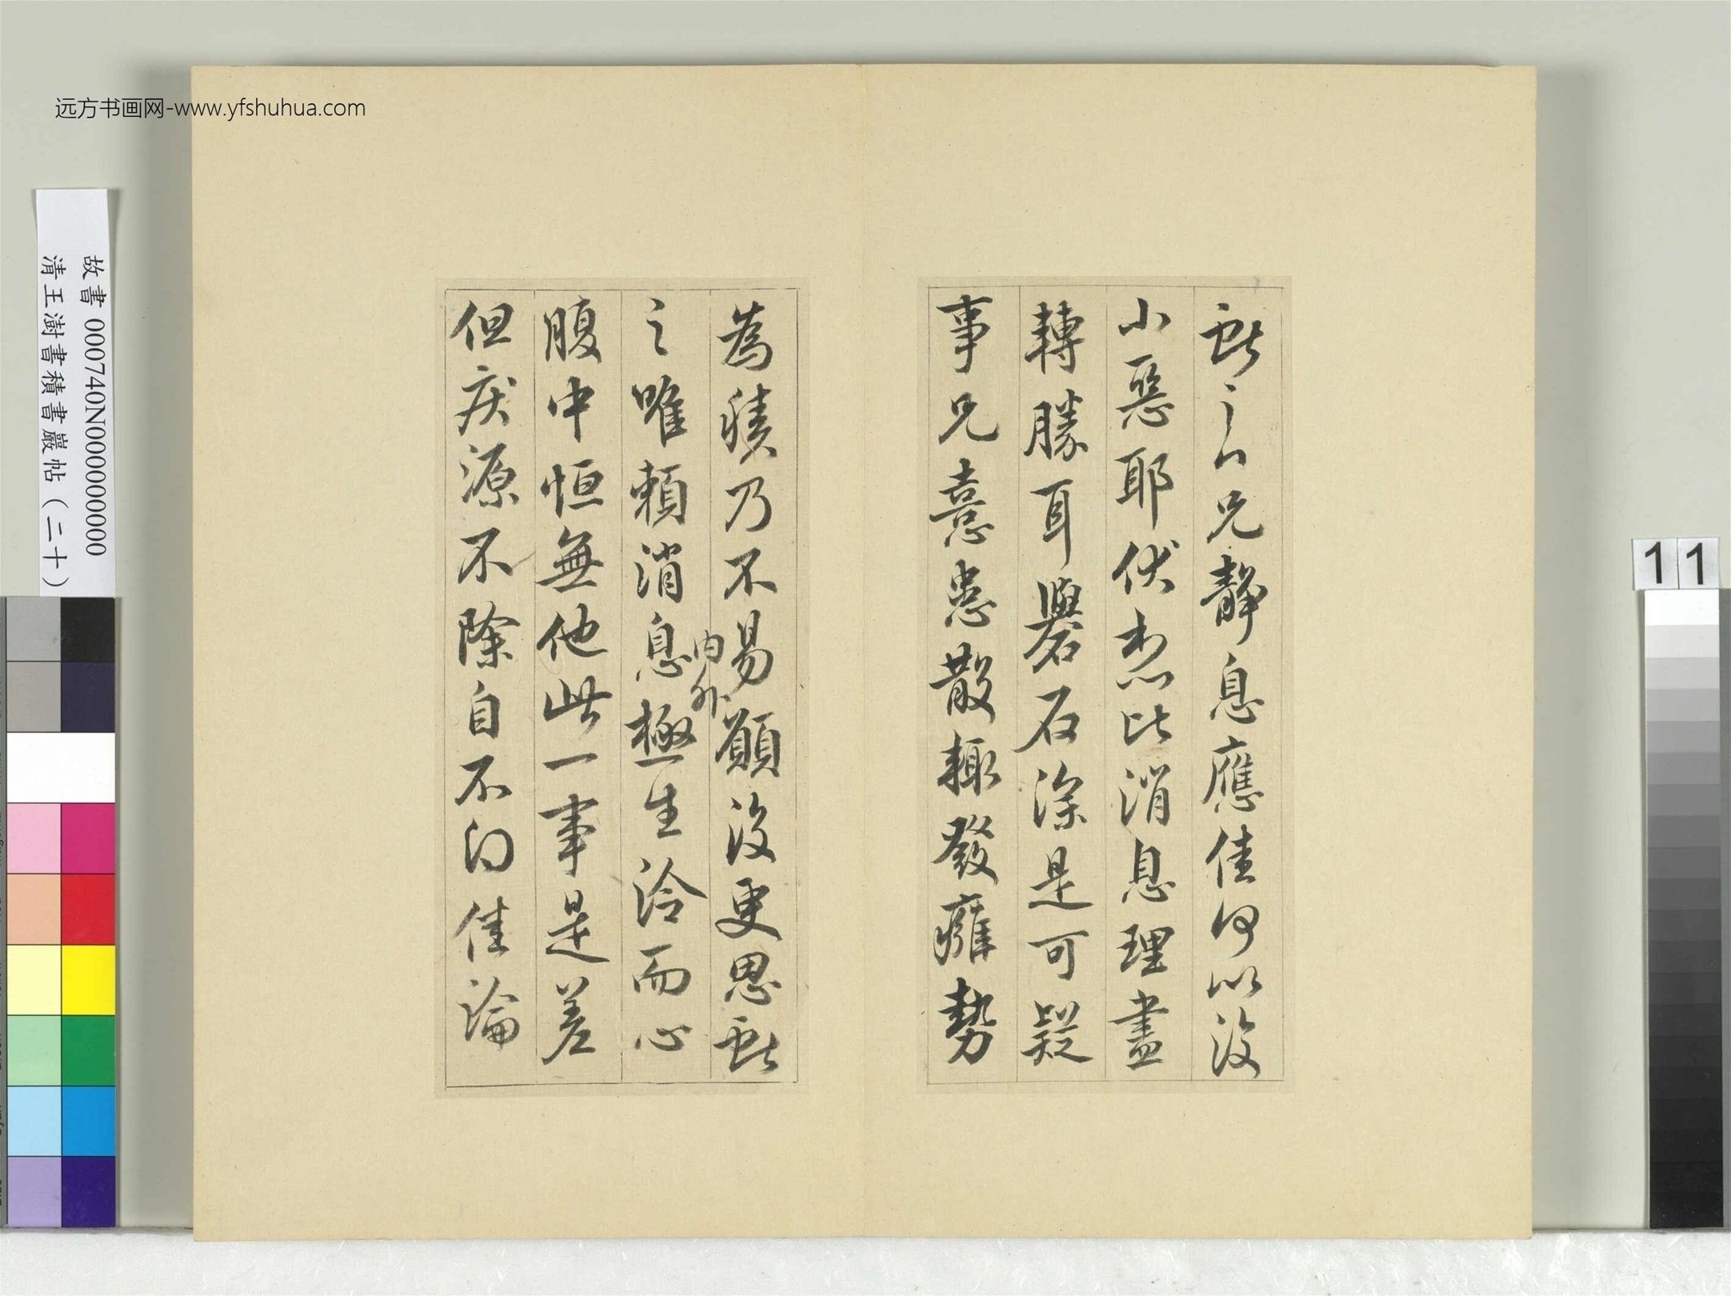 远方书画网-www.yfshuhua.com
故書 000740N000000000
清王澍書積書巖帖（二十）
11
獻之白兄靜息應佳何以復
小惡耶伏想比消息理盡
轉勝耳礜石深是可疑
事兄憙患散輙發癰勢
為積乃不易願復更思獻
之唯賴消息内外極生冷而心
腹中恒無他此一事是差
但疾源不除自不得佳論